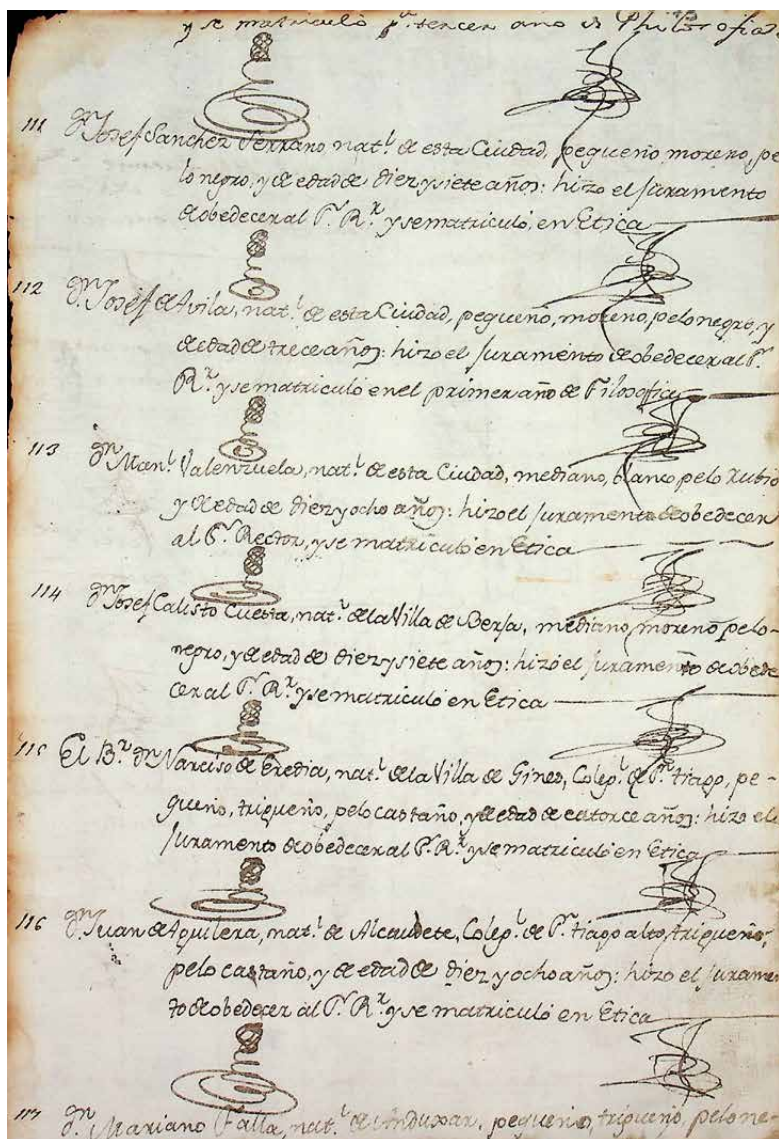 y se matriculó pª. tercer año de Philosofia
111 Dn. Josef Sanchez Serrano, natl. de esta Ciudad, pequeño, moreno, pe-
lo negro, y de edad de diez y siete años: hizo el juramento
de obedecer al Sr. Rr. y se matriculó en Etica
112 Dn. Josef de Avila, natl. de esta Ciudad, pequeño, moreno, pelo negro, y
de edad de trece años: hizo el juramento de obedecer al Sr.
Rr. y se matriculó en el primer año de Filosofia
113 Dn. Manl. Valenzuela, natl. de esta Ciudad, mediano, blanco pelo rubio
y de edad de diez y ocho años: hizo el juramento de obedecer
al Sr. Rector, y se matriculó en Etica
114 Dn. Josef Calisto Cuesta, natl. de la Villa de Berja, mediano, moreno, pelo
negro, y de edad de diez y siete años: hizo el juramento de obede
cer al Sr. Rr. y se matriculó en Etica
115 El Br. Dn. Narciso de Eredia, natl. de la Villa de Gines, Colegl. de Sn. tiago, pe-
queño, trigueño, pelo castaño, y de edad de catorce años: hizo el
juramento de obedecer al Sr. Rr. y se matriculó en Etica
116 Dn. Juan de Aguilera, natl. de Alcaudete, Colegl. de Sn. tiago alto, trigueño,
pelo castaño, y de edad de diez y ocho años: hizo el juramen
to de obedecer al Sr. Rr. y se matriculó en Etica
117 Dn. Mariano Falla, natl. de Anduxar, pequeño, trigueño, pelo ne-